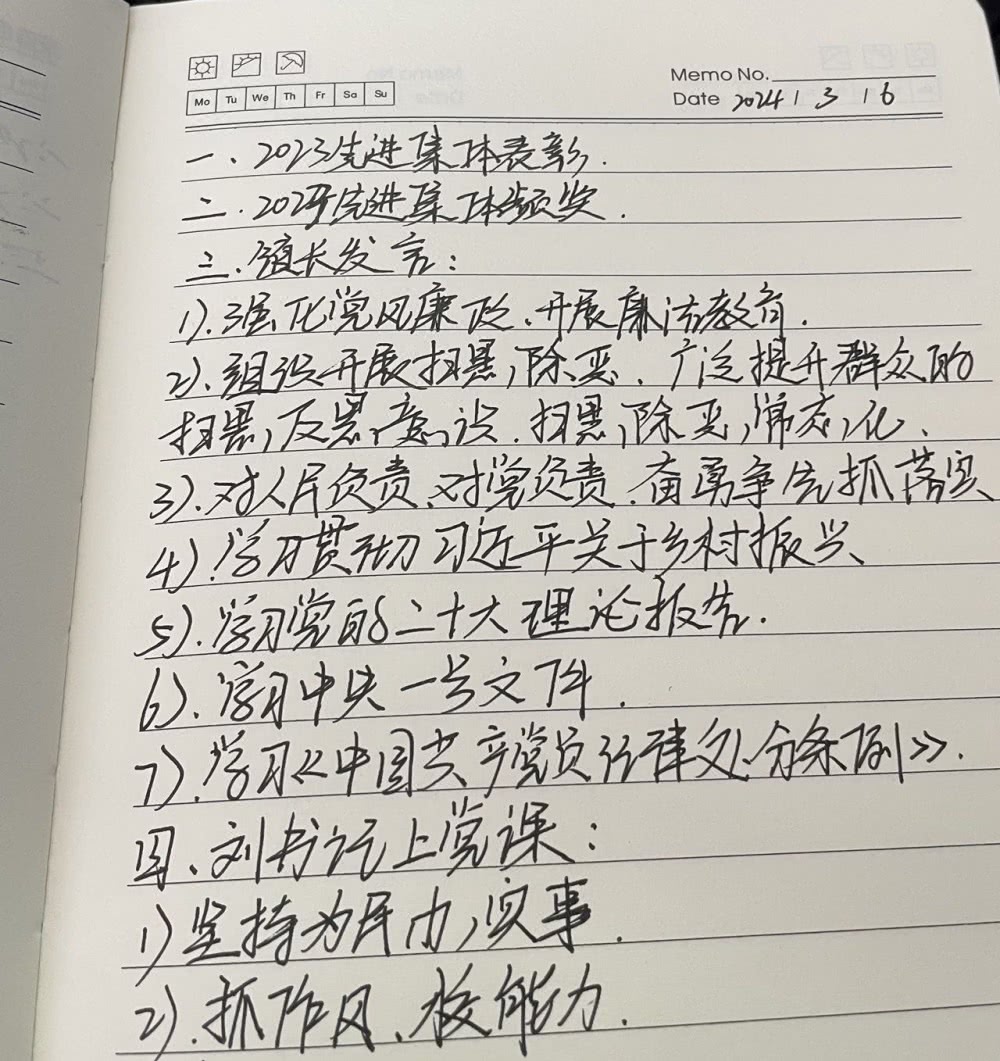 Memo No.
Mo Tu We Th Fr Sa Su
Date 2024 / 3 / 6
一、2023先进集体表彰.
二.2023先进集体颁奖.
三.镇长发言:
1).强化党风廉政、开展廉洁教育.
2).组织开展扫黑,除恶.广泛提升群众的
扫黑,反黑,意,识.扫黑,除恶,常态,化、
3).对人民负责、对党负责.奋勇争先抓落实
4).学习贯彻习近平关于乡村振兴、
5).学习党的二十大理论报告.
6).学习中央一号文件.
7).学习《中国共产党员纪律处分条例》.
四、刘书记上党课:
1)坚持为民办,实事.
2).抓作风、校能力.